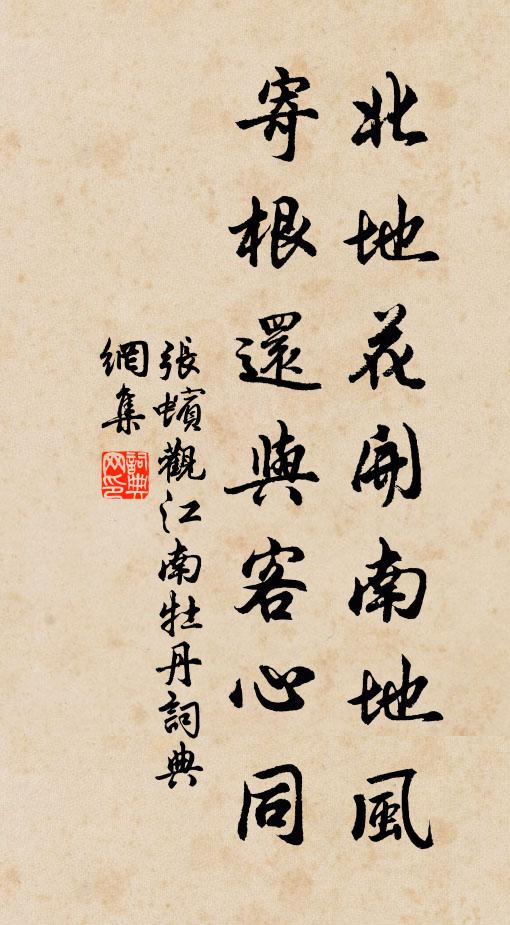 北地花開南地風
寄根還與客心同
張蠙觀江南牡丹詞典
網集
詞典
网印